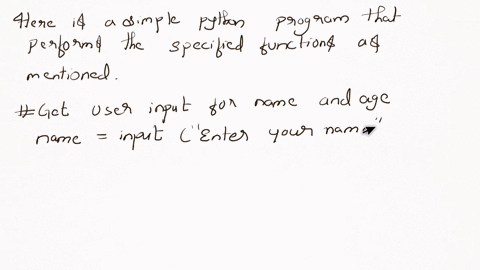 Here is a simple python program that
performs the specified functions as
mentioned.
#Get user input for name and age
name = input ("Enter your name"